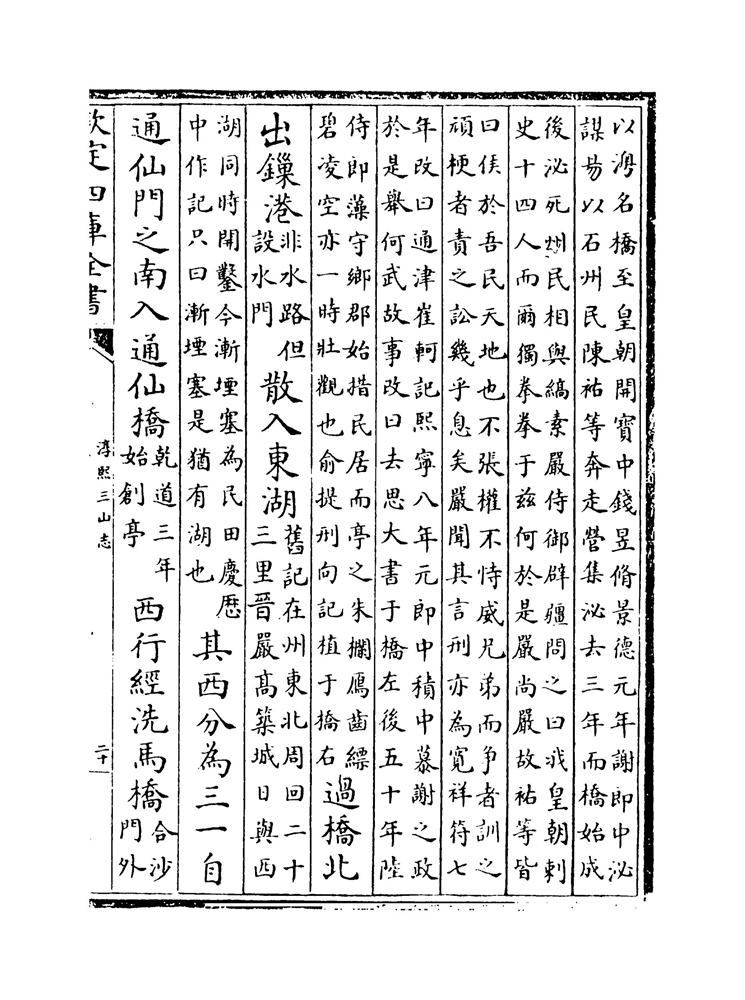 以名橋至皇朝開寶中錢昱脩景德元年謝郎中泌
謀易以石州民陳祐等奔走營集泌去三年而橋始成
後泌死州民相與縞素嚴侍御辟疆問之曰我皇朝刺
史十四人而爾獨拳拳于兹何於是嚴尚嚴故祐等皆
曰侯於吾民天地也不張權不恃威兄弟而争者訓之
頑梗者責之訟幾乎息矣嚴聞其言刑亦為寛祥符七
年改曰通津崔軻記熙寧八年元郎中積中慕謝之政
於是舉何武故事改曰去思大書于橋左後五十年陸
侍郎藻守鄉郡始措民居而亭之朱欄鴈齒縹
碧凌空亦一時壯觀也俞提刑向記植于橋右
過橋北
出鏁港
非水路但
設水門
散入東湖
舊記在州東北周回二十
三里晉嚴髙築城日與西
湖同時開鑿今漸堙塞為民田慶厯
中作記只曰漸堙塞是猶有湖也
其西分為三一自
通仙門之南入通仙橋
乾道三年
始創亭
西行經洗馬橋
合沙
門外
欽定四庫全書
淳熙三山志
二十